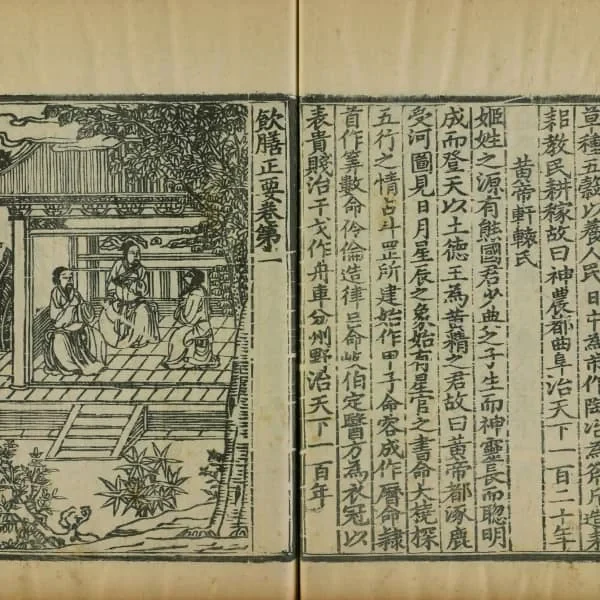 草種五穀以養人民日中為市作陶冶為斧斤造耒
耜教民耕稼故曰神農都曲阜治天下一百二十年
黃帝軒轅氏
姬姓之源有熊國君少典之子生而神靈長而聰明
成而登天以土德王為黃精之君故曰黃帝都涿鹿
受河圖見日月星辰之象始有星官之書命大撓探
五行之情占斗罡所建始作甲子命容成作曆命隸
首作筭數命伶倫造律呂命岐伯定醫方為衣冠以
表貴賤治干戈作舟車分州野治天下一百年
飲膳正要卷第一